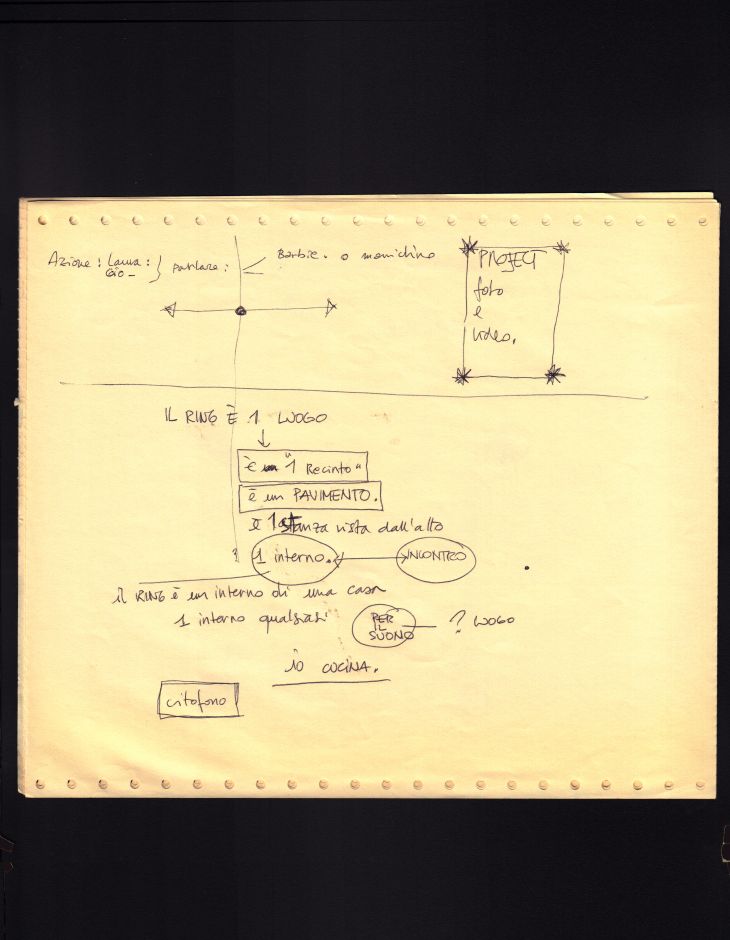 Azione : Laura : } parlare :
Gio -
Barbie. o manichino
PROJECT
foto
e
video.
IL RING È 1 LUOGO
è un "1 Recinto"
è un PAVIMENTO.
e 1 stanza vista dall'alto
1 interno.
INCONTRO
il RING è un interno di una casa
1 interno qualsiasi
PER
IL
SUONO
? LUOGO
io CUCINA.
citofono